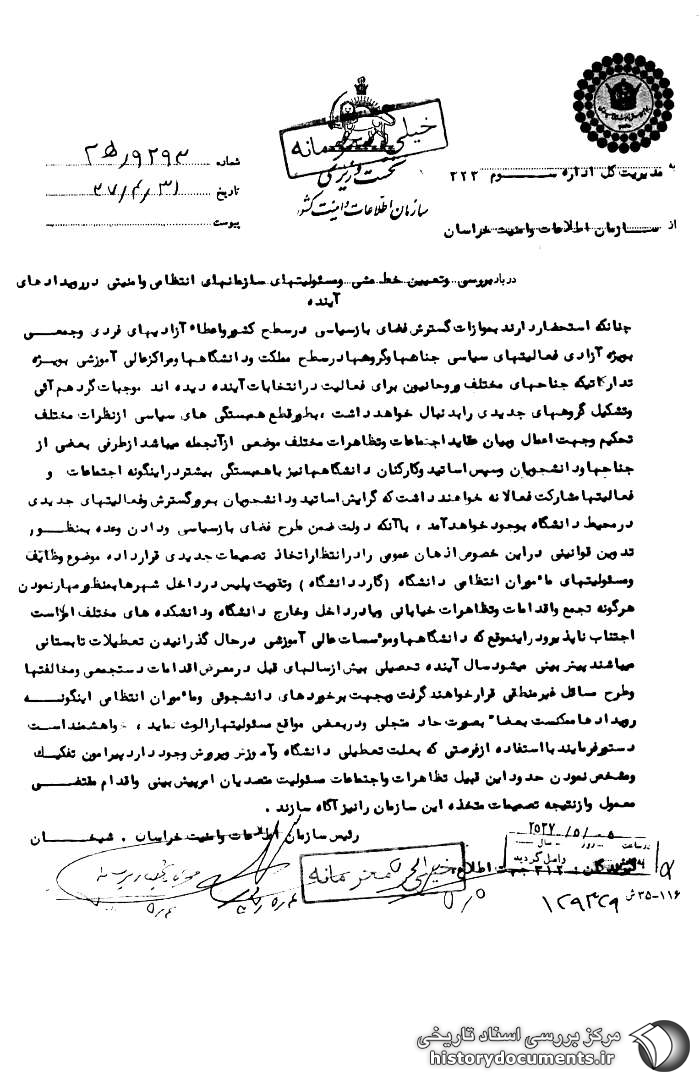 خیلی محرمانه
نخست وزیری
سازمان اطلاعات و امنیت کشور
شماره ۹۲۹۳/ﻫ۲
تاریخ ۳۷/۴/۳۱
پیوست
به مدیریت کل اداره ســـوم ۲۲۳
از ســازمان اطلاعات وامنیت خراسان
درباره بررسی وتعیین خط مشی ومسئولیتهای سازمانهای انتظامی وامنیتی دررویدادهای
آینده
چنانکه استحضاردارند بموازات گسترش فضای بازسیاسی درسطح کشورواعطاء آزادیهای فردی وجمعـی
بویژه آزادی فعالیتهای سیاسی جناحهاوگروههادرسطح مملکت ودانشگاههاومراکزعالی آموزشی بویـژه
تدارکاتیکه جناحهای مختلف وروحانیون برای فعالیت درانتخابات آینده دیده اند موجبات گردهم آئی
وتشکیل گروههای جدیدی رابدنبال خواهدداشت ، بطورقطع همبستگی های سیاسی ازنظرات مختلف
تحکیم وجهت اعمال وبیان عقاید اجتماعات وتظاهرات مختلف موضعی ازآنجمله میباشد ازطرفی بعضی از
جناحهاودانشجویان وسپس اساتید وکارکنان دانشگاههانیز باهمبستگی بیشتردراینگونه اجتماعات و
فعالیتهامشارکت فعالانه خواهندداشت که گرایش اساتید ودانشجویان بمرورگسترش وفعالیتهای جدیدی
درمحیط دانشگاه بوجودخواهدآمد ، باآنکه دولت ضمن طرح فضای بازسیاسی ودادن وعده بمنظـور
تدوین قوانینی دراین خصوص اذهان عمومی رادرانتظاراتخاذ تصمیمات جدیدی قرارداده موضوع وظایف
ومسئولیتهای مأموران انتظامی دانشگاه ( گارددانشگاه ) وتقویت پلیس درداخل شهرهابمنظورمهارنمودن
هرگونه تجمع واقدامات وتظاهرات خیابانی ویادرداخل وخارج دانشگاه ودانشکده های مختلف امریست
اجتناب ناپذیرودراینموقع که دانشگاههاومؤسسات عالی آموزشی درحال گذرانیدن تعطیلات تابستانی
میباشند پیش بینی میشودسال آینده تحصیلی بیش ازسالهای قبل درمعرض اقدامات دستجمعی ومخالفتها
وطرح مسائل غیرمنطقی قرارخواهند گرفت وبجهت برخوردهای دانشجوئی ومأموران انتظامی اینگونـه
رویدادهاممکنست بعضاً بصورت حاد متجلی ودربعضی مواقع مسئولیتهارالوث نماید ، خواهشمنداست
دستورفرمایند بااستفاده ازفرصتی که بعلت تعطیلی دانشگاه وآموزش وپرورش وجود دارد پیرامون تفکیك
ومشخص نمودن حدود این قبیل تظاهرات واجتماعات مسئولیت متصدیان امرپیش بینی واقدام مقتضـی
معمول وازنتیجه تصمیمات متخذه این سازمان رانیزآگاه سازند .
رئیس سازمان اطلاعات وامنیت خراسان . شیخـــان
۲۵۳۷/۵/۰۵
درساعت روز سال
واصل گردید
گیرندگان : ۳۱۲ جهت اطلاع
خیلی محرمانه
۵/۵
۱۲۹۳۲۹
۳۵-۱۱۶ ش
مرکز بررسی اسناد تاریخی
historydocuments.ir